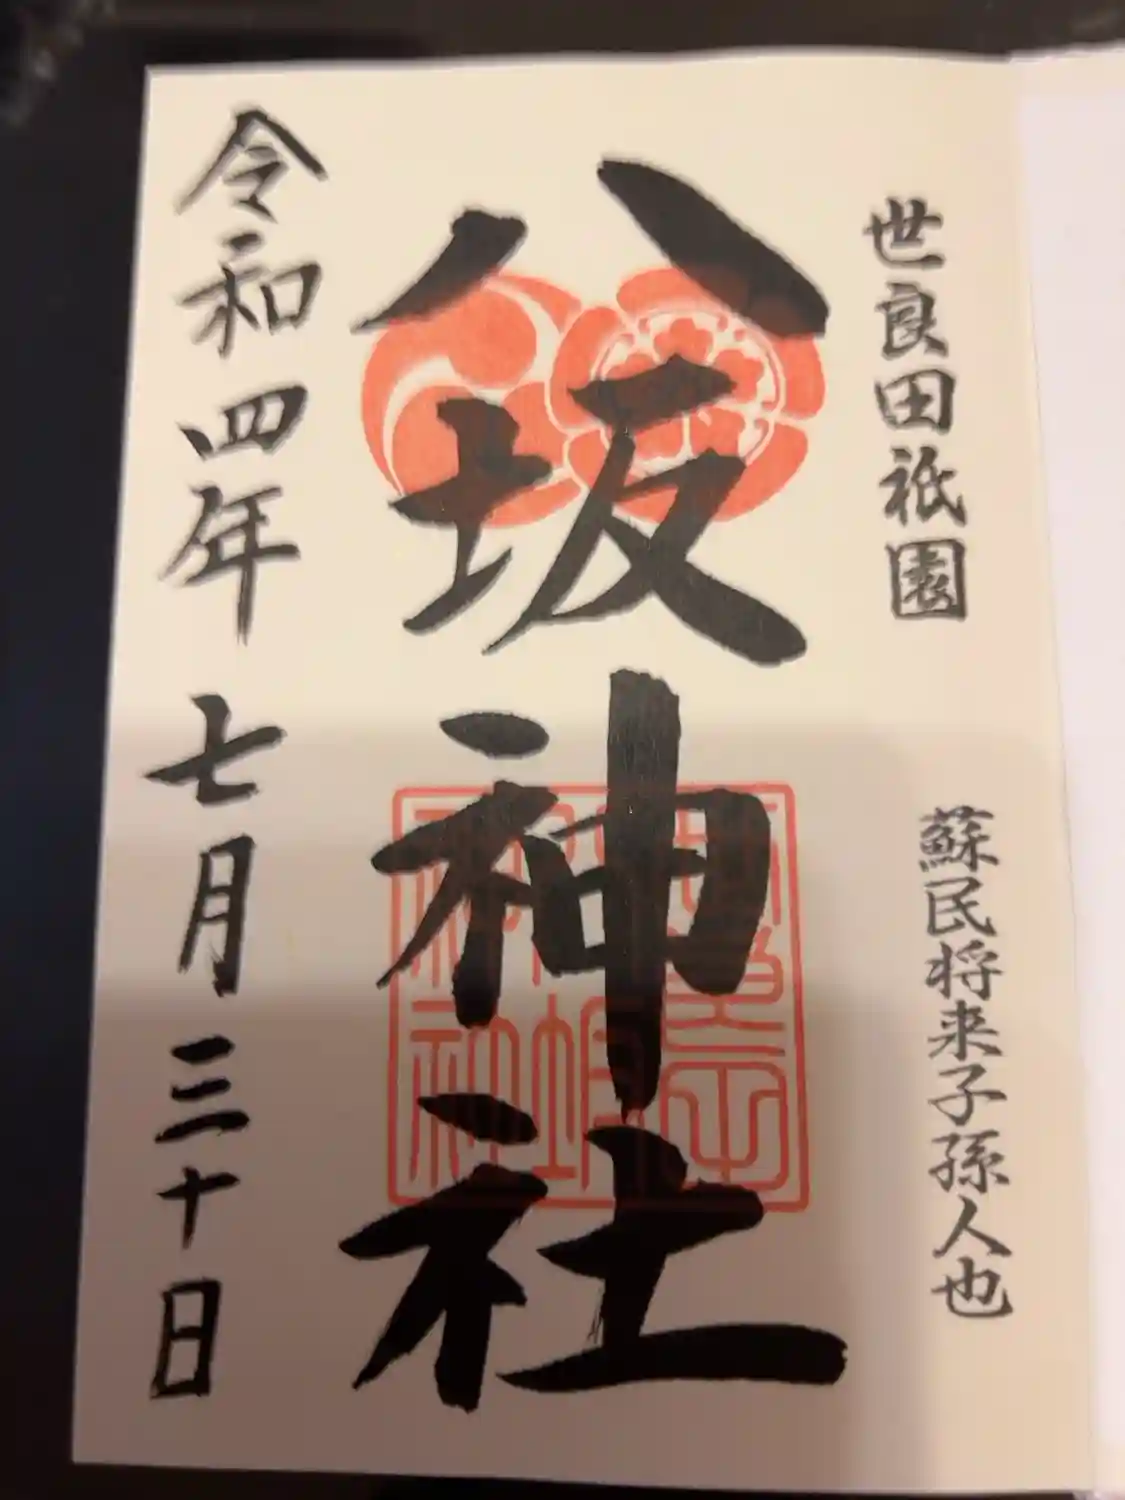 世良田祇園
蘇民将来子孫人也
八坂神社
令和四年 七月三十日